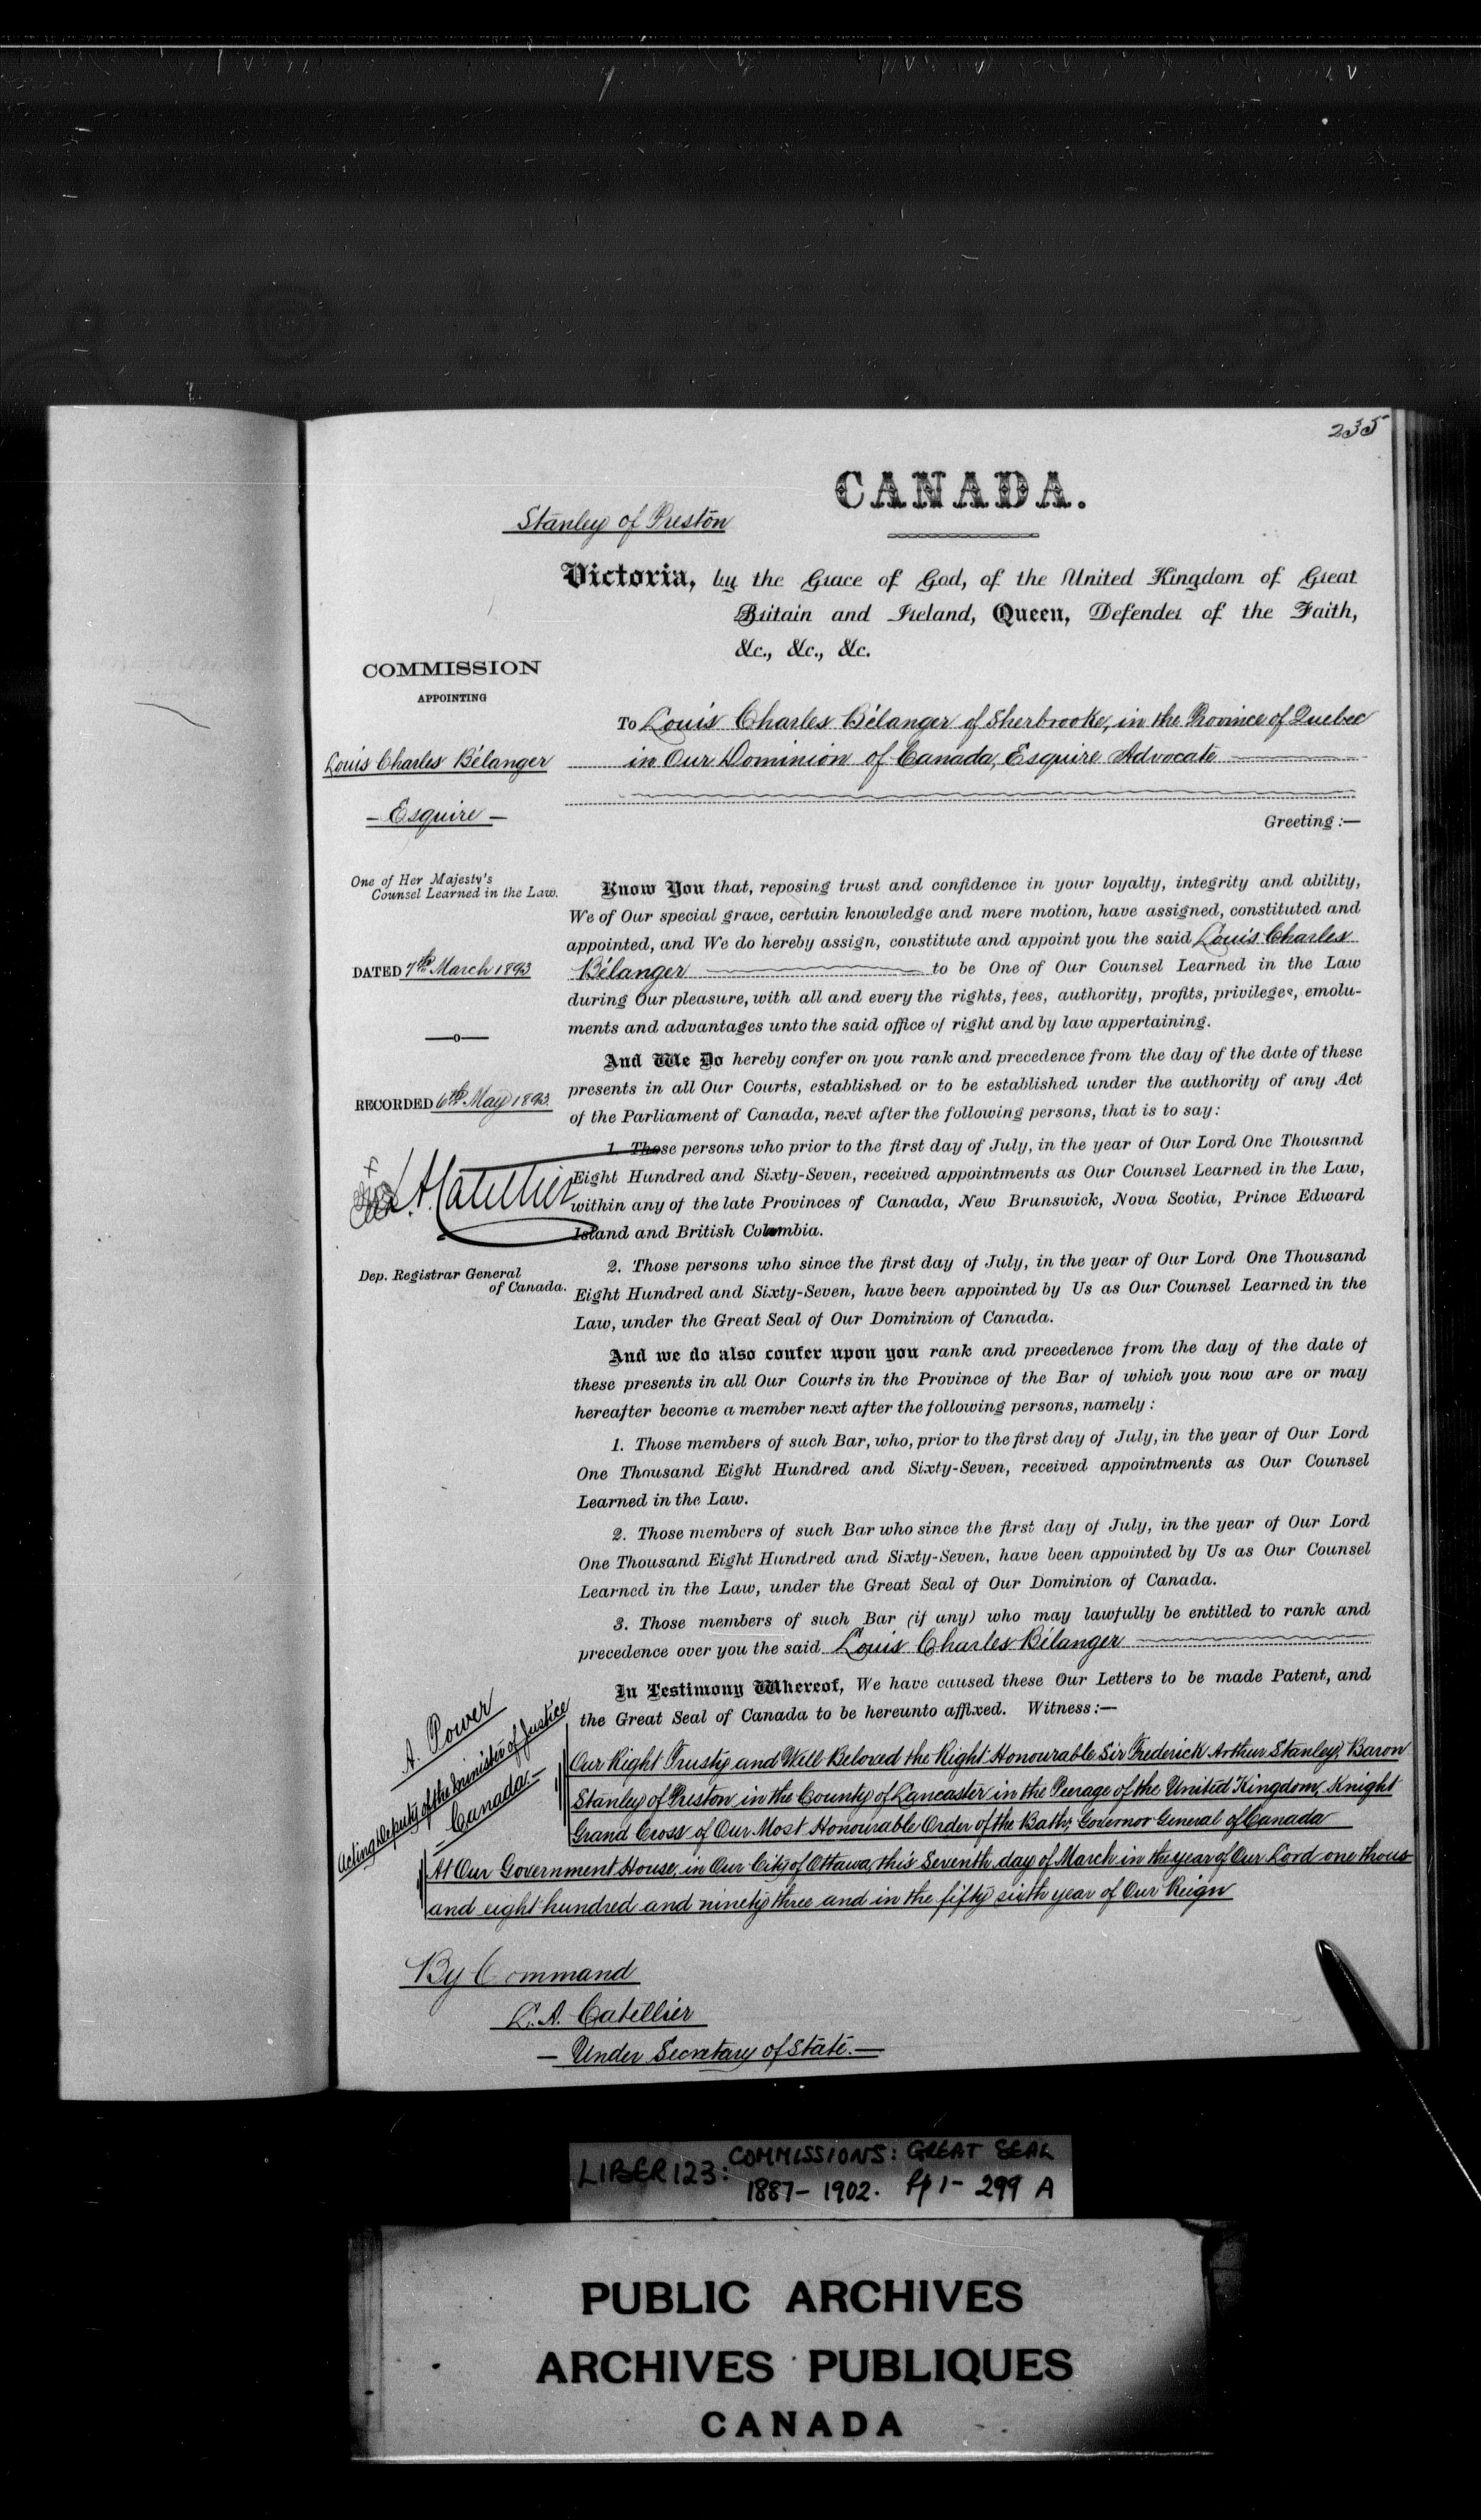 235
CANADA.
Stanley of Preston
Victoria, by the Grace of God, of the United Kingdom of Great
Britain and Ireland, Queen, Defender of the Faith,
&c., &c., &c.
COMMISSION
APPOINTING
Louis Charles Bélanger
- Esquire -
One of Her Majesty's
Counsel Learned in the Law.
DATED 7th March 1893
RECORDED 6th May 1893.
L. A. Catellier
Dep. Registrar General
of Canada.
To Louis Charles Bélanger of Sherbrooke, in the Province of Quebec
in Our Dominion of Canada, Esquire Advocate
Greeting :—
Know You that, reposing trust and confidence in your loyalty, integrity and ability,
We of Our special grace, certain knowledge and mere motion, have assigned, constituted and
appointed, and We do hereby assign, constitute and appoint you the said Louis Charles
Bélanger to be One of Our Counsel Learned in the Law
during Our pleasure, with all and every the rights, fees, authority, profits, privileges, emolu-
ments and advantages unto the said office of right and by law appertaining.
And We Do hereby confer on you rank and precedence from the day of the date of these
presents in all Our Courts, established or to be established under the authority of any Act
of the Parliament of Canada, next after the following persons, that is to say:
1. Those persons who prior to the first day of July, in the year of Our Lord One Thousand
Eight Hundred and Sixty-Seven, received appointments as Our Counsel Learned in the Law,
within any of the late Provinces of Canada, New Brunswick, Nova Scotia, Prince Edward
Island and British Columbia.
2. Those persons who since the first day of July, in the year of Our Lord One Thousand
Eight Hundred and Sixty-Seven, have been appointed by Us as Our Counsel Learned in the
Law, under the Great Seal of Our Dominion of Canada.
And we do also confer upon you rank and precedence from the day of the date of
these presents in all Our Courts in the Province of the Bar of which you now are or may
hereafter become a member next after the following persons, namely :
1. Those members of such Bar, who, prior to the first day of July, in the year of Our Lord
One Thousand Eight Hundred and Sixty-Seven, received appointments as Our Counsel
Learned in the Law.
2. Those members of such Bar who since the first day of July, in the year of Our Lord
One Thousand Eight Hundred and Sixty-Seven, have been appointed by Us as Our Counsel
Learned in the Law, under the Great Seal of Our Dominion of Canada.
3. Those members of such Bar (if any) who may lawfully be entitled to rank and
precedence over you the said Louis Charles Bélanger
In Testimony Whereof, We have caused these Our Letters to be made Patent, and
the Great Seal of Canada to be hereunto affixed. Witness:—
A. Power
Acting Deputy of the Minister of Justice
- Canada -
Our Right Trusty and Well Beloved the Right Honourable Sir Frederick Arthur Stanley, Baron
Stanley of Preston in the County of Lancaster in the Peerage of the United Kingdom, Knight
Grand Cross of Our Most Honourable Order of the Bath, Governor General of Canada
At Our Government House, in Our City of Ottawa, this Seventh day of March in the year of Our Lord one thous-
and eight hundred and ninety three and in the fifty sixth year of Our Reign
By Command
L. A. Catellier
- Under Secretary of State. -
LIBER 123: COMMISSIONS: GREAT SEAL
1887- 1902. Pp 1- 299 A
PUBLIC ARCHIVES
ARCHIVES PUBLIQUES
CANADA